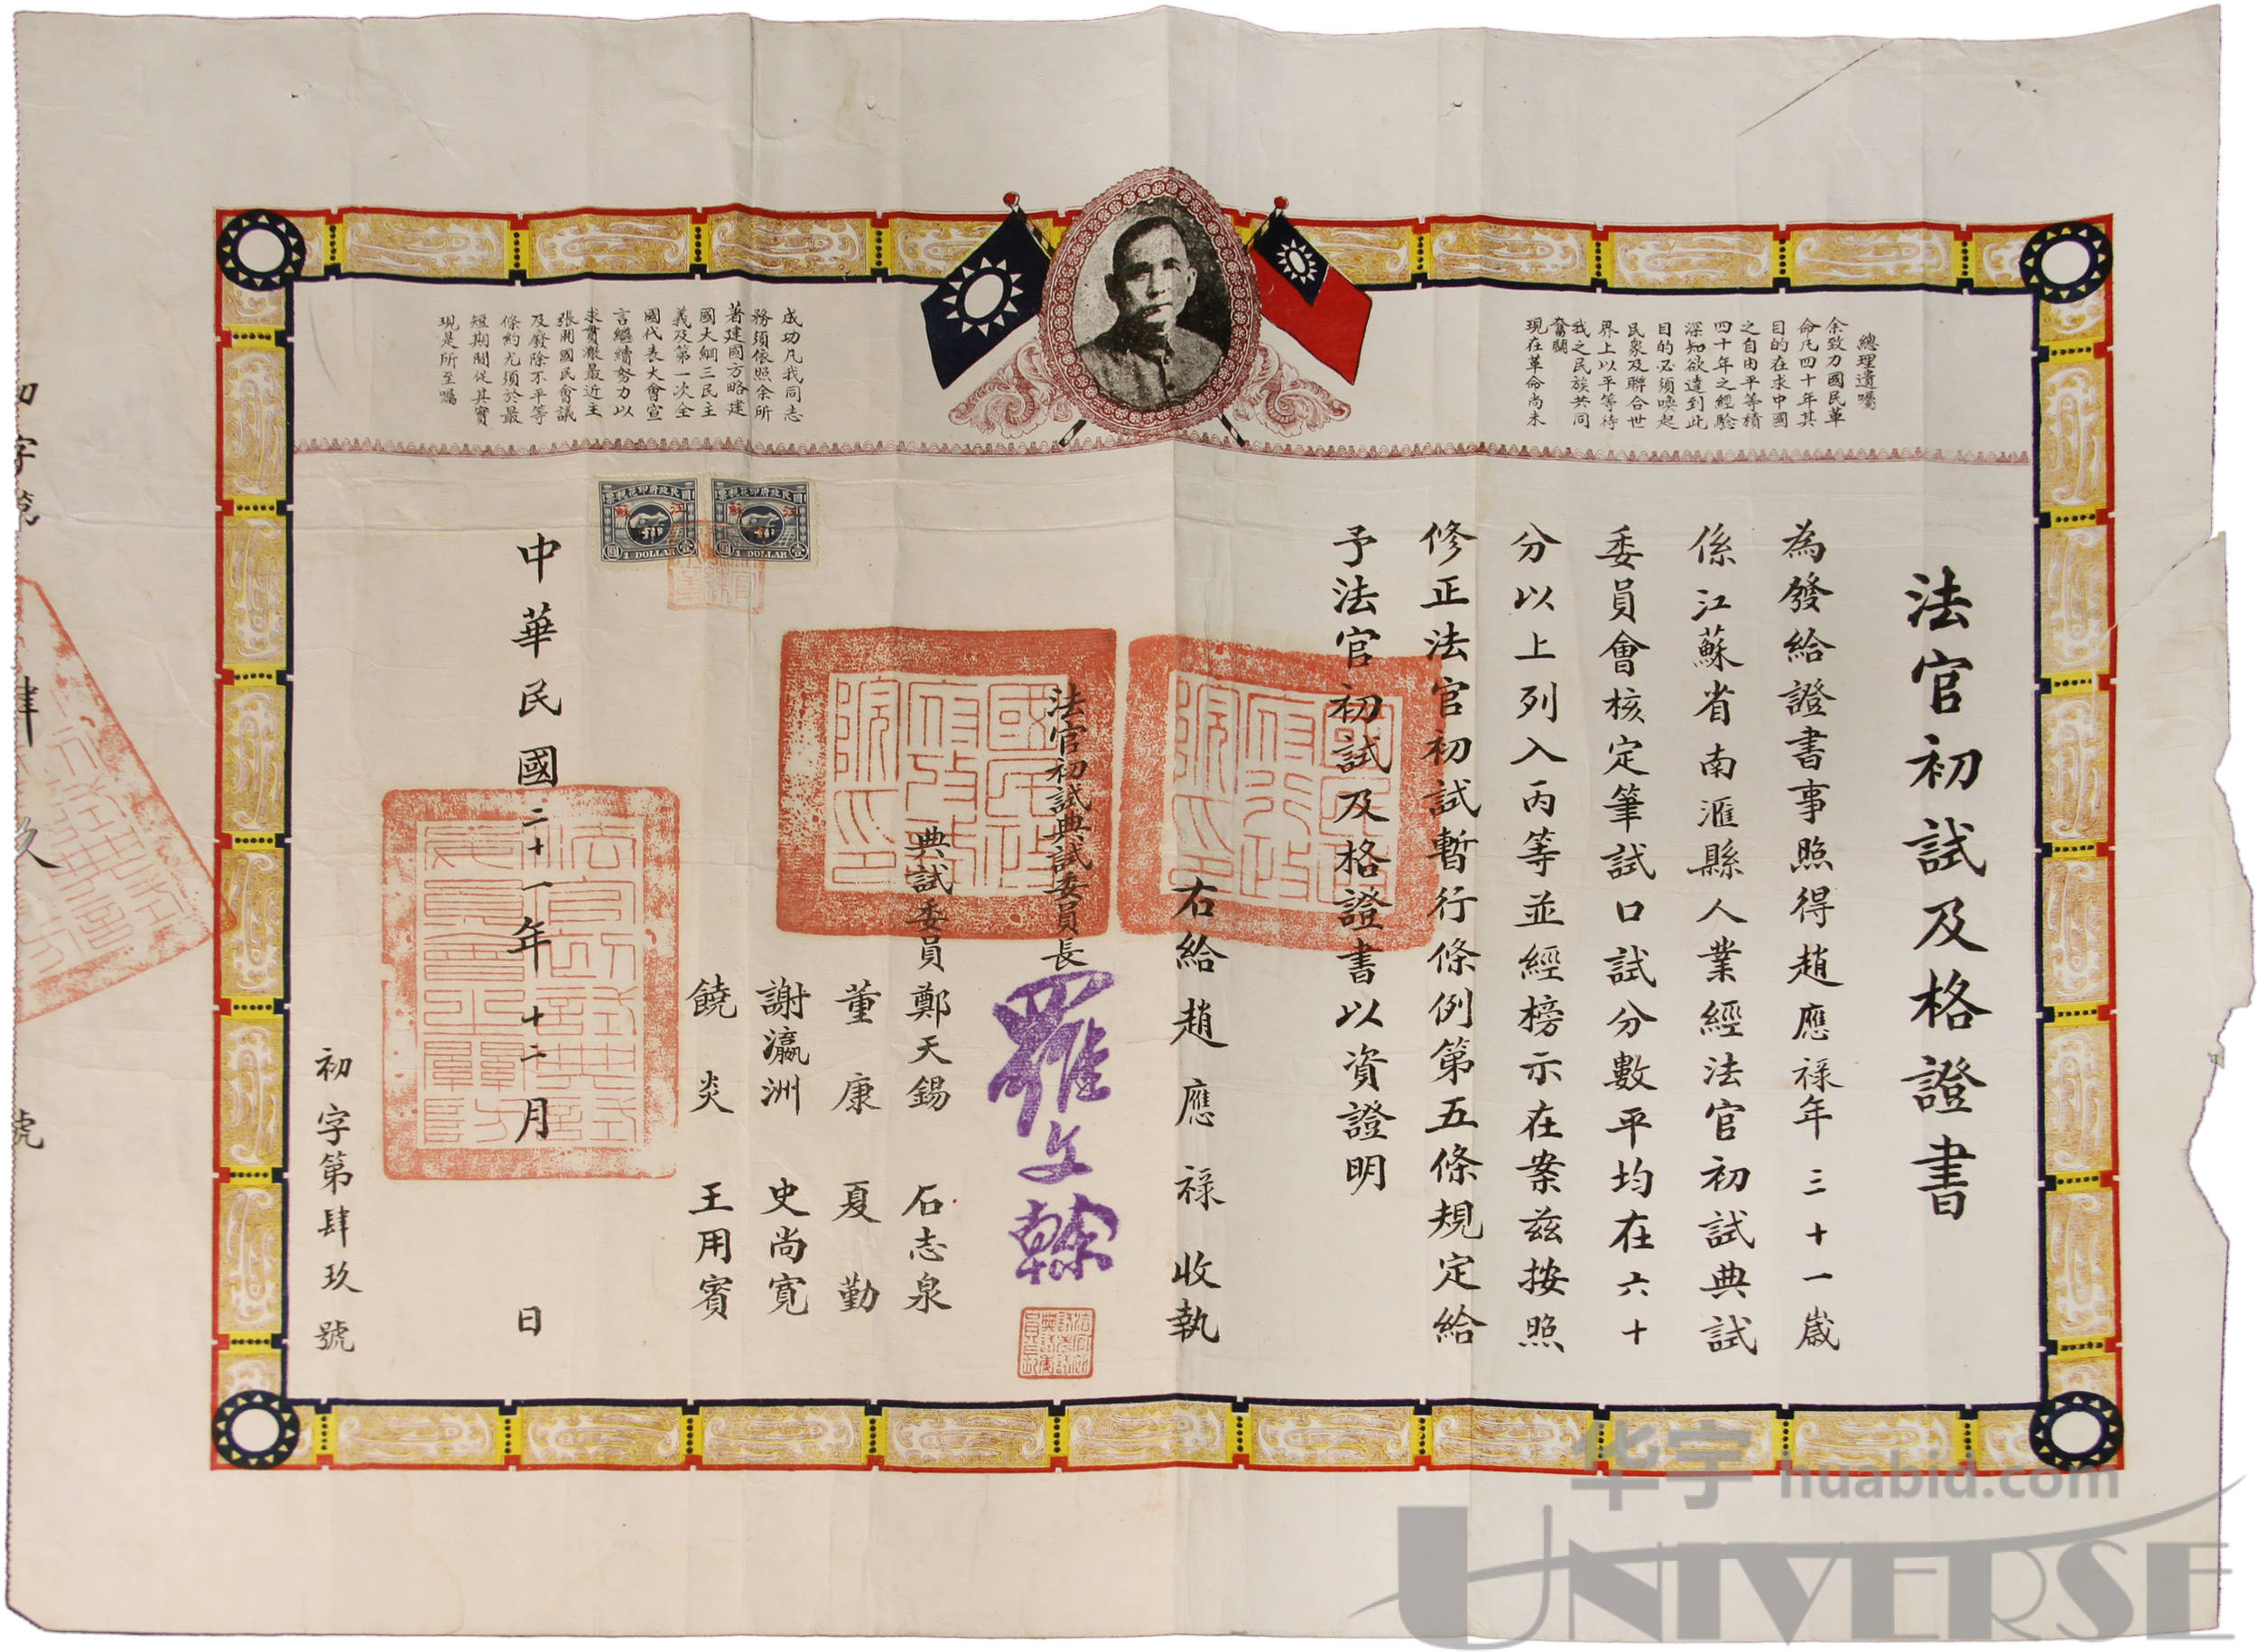 總理遺囑
余致力國民革
命凡四十年其
目的在求中國
之自由平等積
四十年之經驗
深知欲達到此
目的必須喚起
民衆及聯合世
界上以平等待
我之民族共同
奮鬬
現在革命尚未
成功凡我同志
務須依照余所
著建國方略建
國大綱三民主
義及第一次全
國代表大會宣
言繼續努力以
求貫澈最近主
張開國民會議
及廢除不平等
條約尤須於最
短期間促其實
現是所至囑
法官初試及格證書
為發給證書事照得趙應祿年三十一歲
係江蘇省南滙縣人業經法官初試典試
委員會核定筆試口試分數平均在六十
分以上列入丙等並經榜示在案茲按照
修正法官初試暫行條例第五條規定給
予法官初試及格證書以資證明
右給趙應祿收執
法官初試典試委員長羅文榦
典試委員鄭天錫 石志泉
董康 夏勤
謝瀛洲 史尚寬
饒炎 王用賓
國民政府行政院印
國民政府考試院印
國民政府印花稅票
江蘇
1 DOLLAR
壹圓
國民政府印花稅票
江蘇
1 DOLLAR
壹圓
中華民國二十一年十二月 日
初字第肆玖號
华宇 huabid.com
UNIVERSE